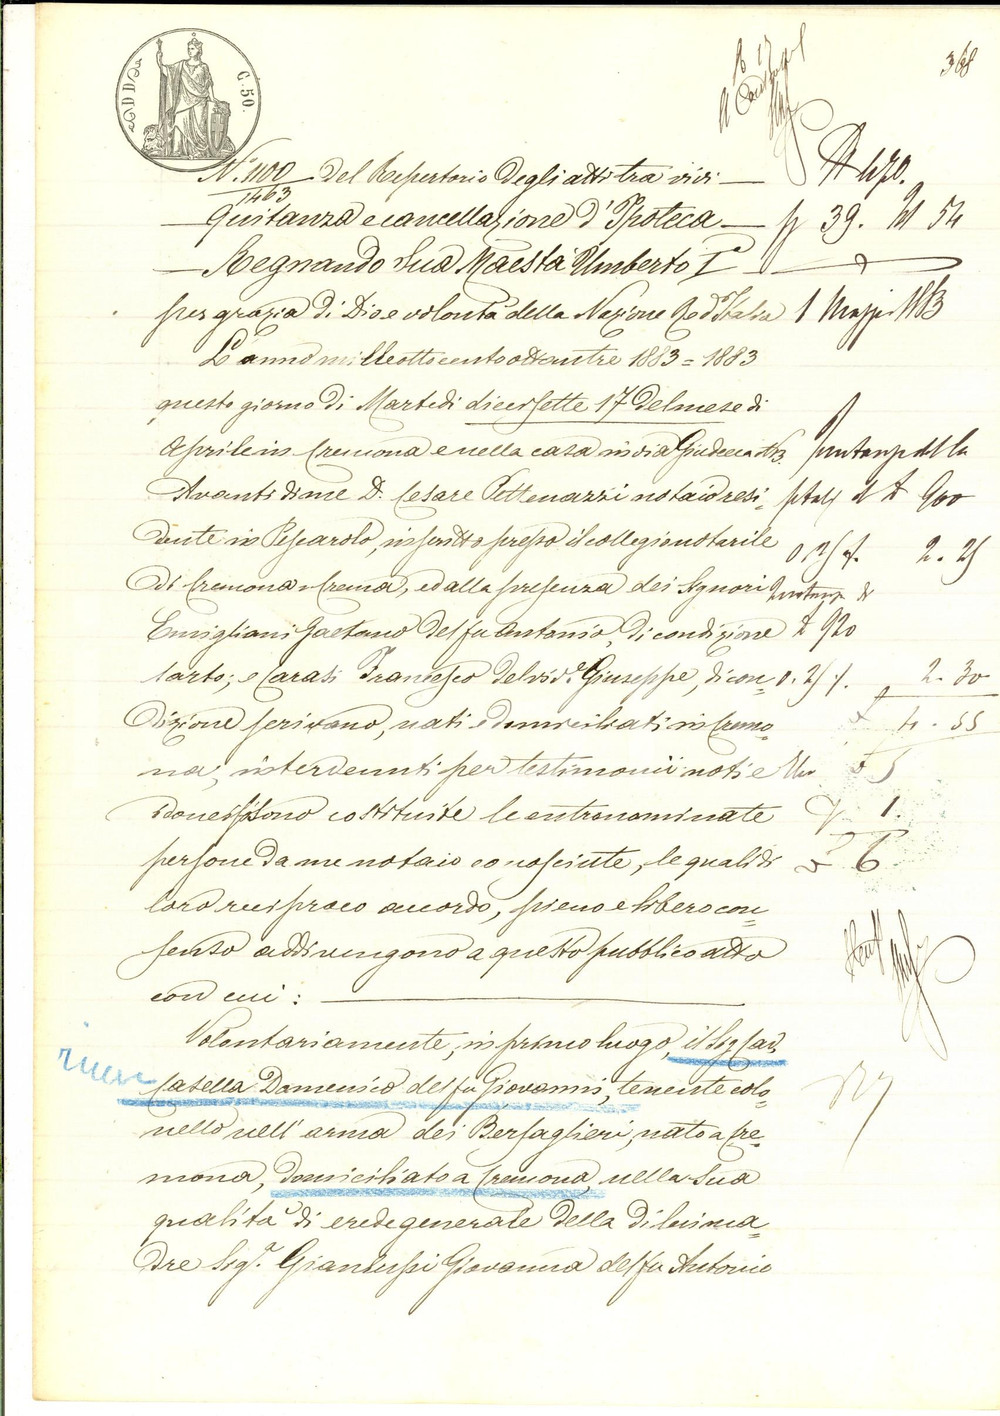 368
C. 50.
N.° 1100 del Repertorio degli atti tra vivi
1463
Quitanza e cancellazione d'Ipoteca
39. 54
Regnando Sua Maestà Umberto I°
per grazia di Dio e volontà della Nazione Re d'Italia
L'anno mille ottocento ottantre 1883 = 1883
questo giorno di Martedi diecisette 17 del mese di
Aprile in Cremona e nella casa in via Giudecca N. 3.
Avanti di me D. Cesare Pettenazzi notaio resi-
900
dente in Pescarolo, inscritto presso il collegio notarile
2. 25
di Cremona e Crema, ed alla presenza dei Signori
Emigliani Gaetano del fu Antonio, di condizione
920
sarto; e Carasi Francesco del viv.e Giuseppe, di con-
2. 30
dizione scrivano, nati e domiciliati in Cremo-
4. 55
na, intervenuti per testimonii noti e
idonei si sono costituite le entronominate
1.
persone da me notaio conosciute, le quali di
6
loro reciproco accordo, pieno e libero con-
senso addivengono a questo pubblico atto
con cui:
Volontariamente, in primo luogo, il Sig. Cav.
Casella Domenico del fu Giovanni, tenente colo-
nello nell'arma dei Bersaglieri, nato a Cre-
mona, domiciliato a Cremona, nella sua
qualità di erede generale della di lui ma-
dre Sig.ra Gianlupi Giovanna del fu Antonio